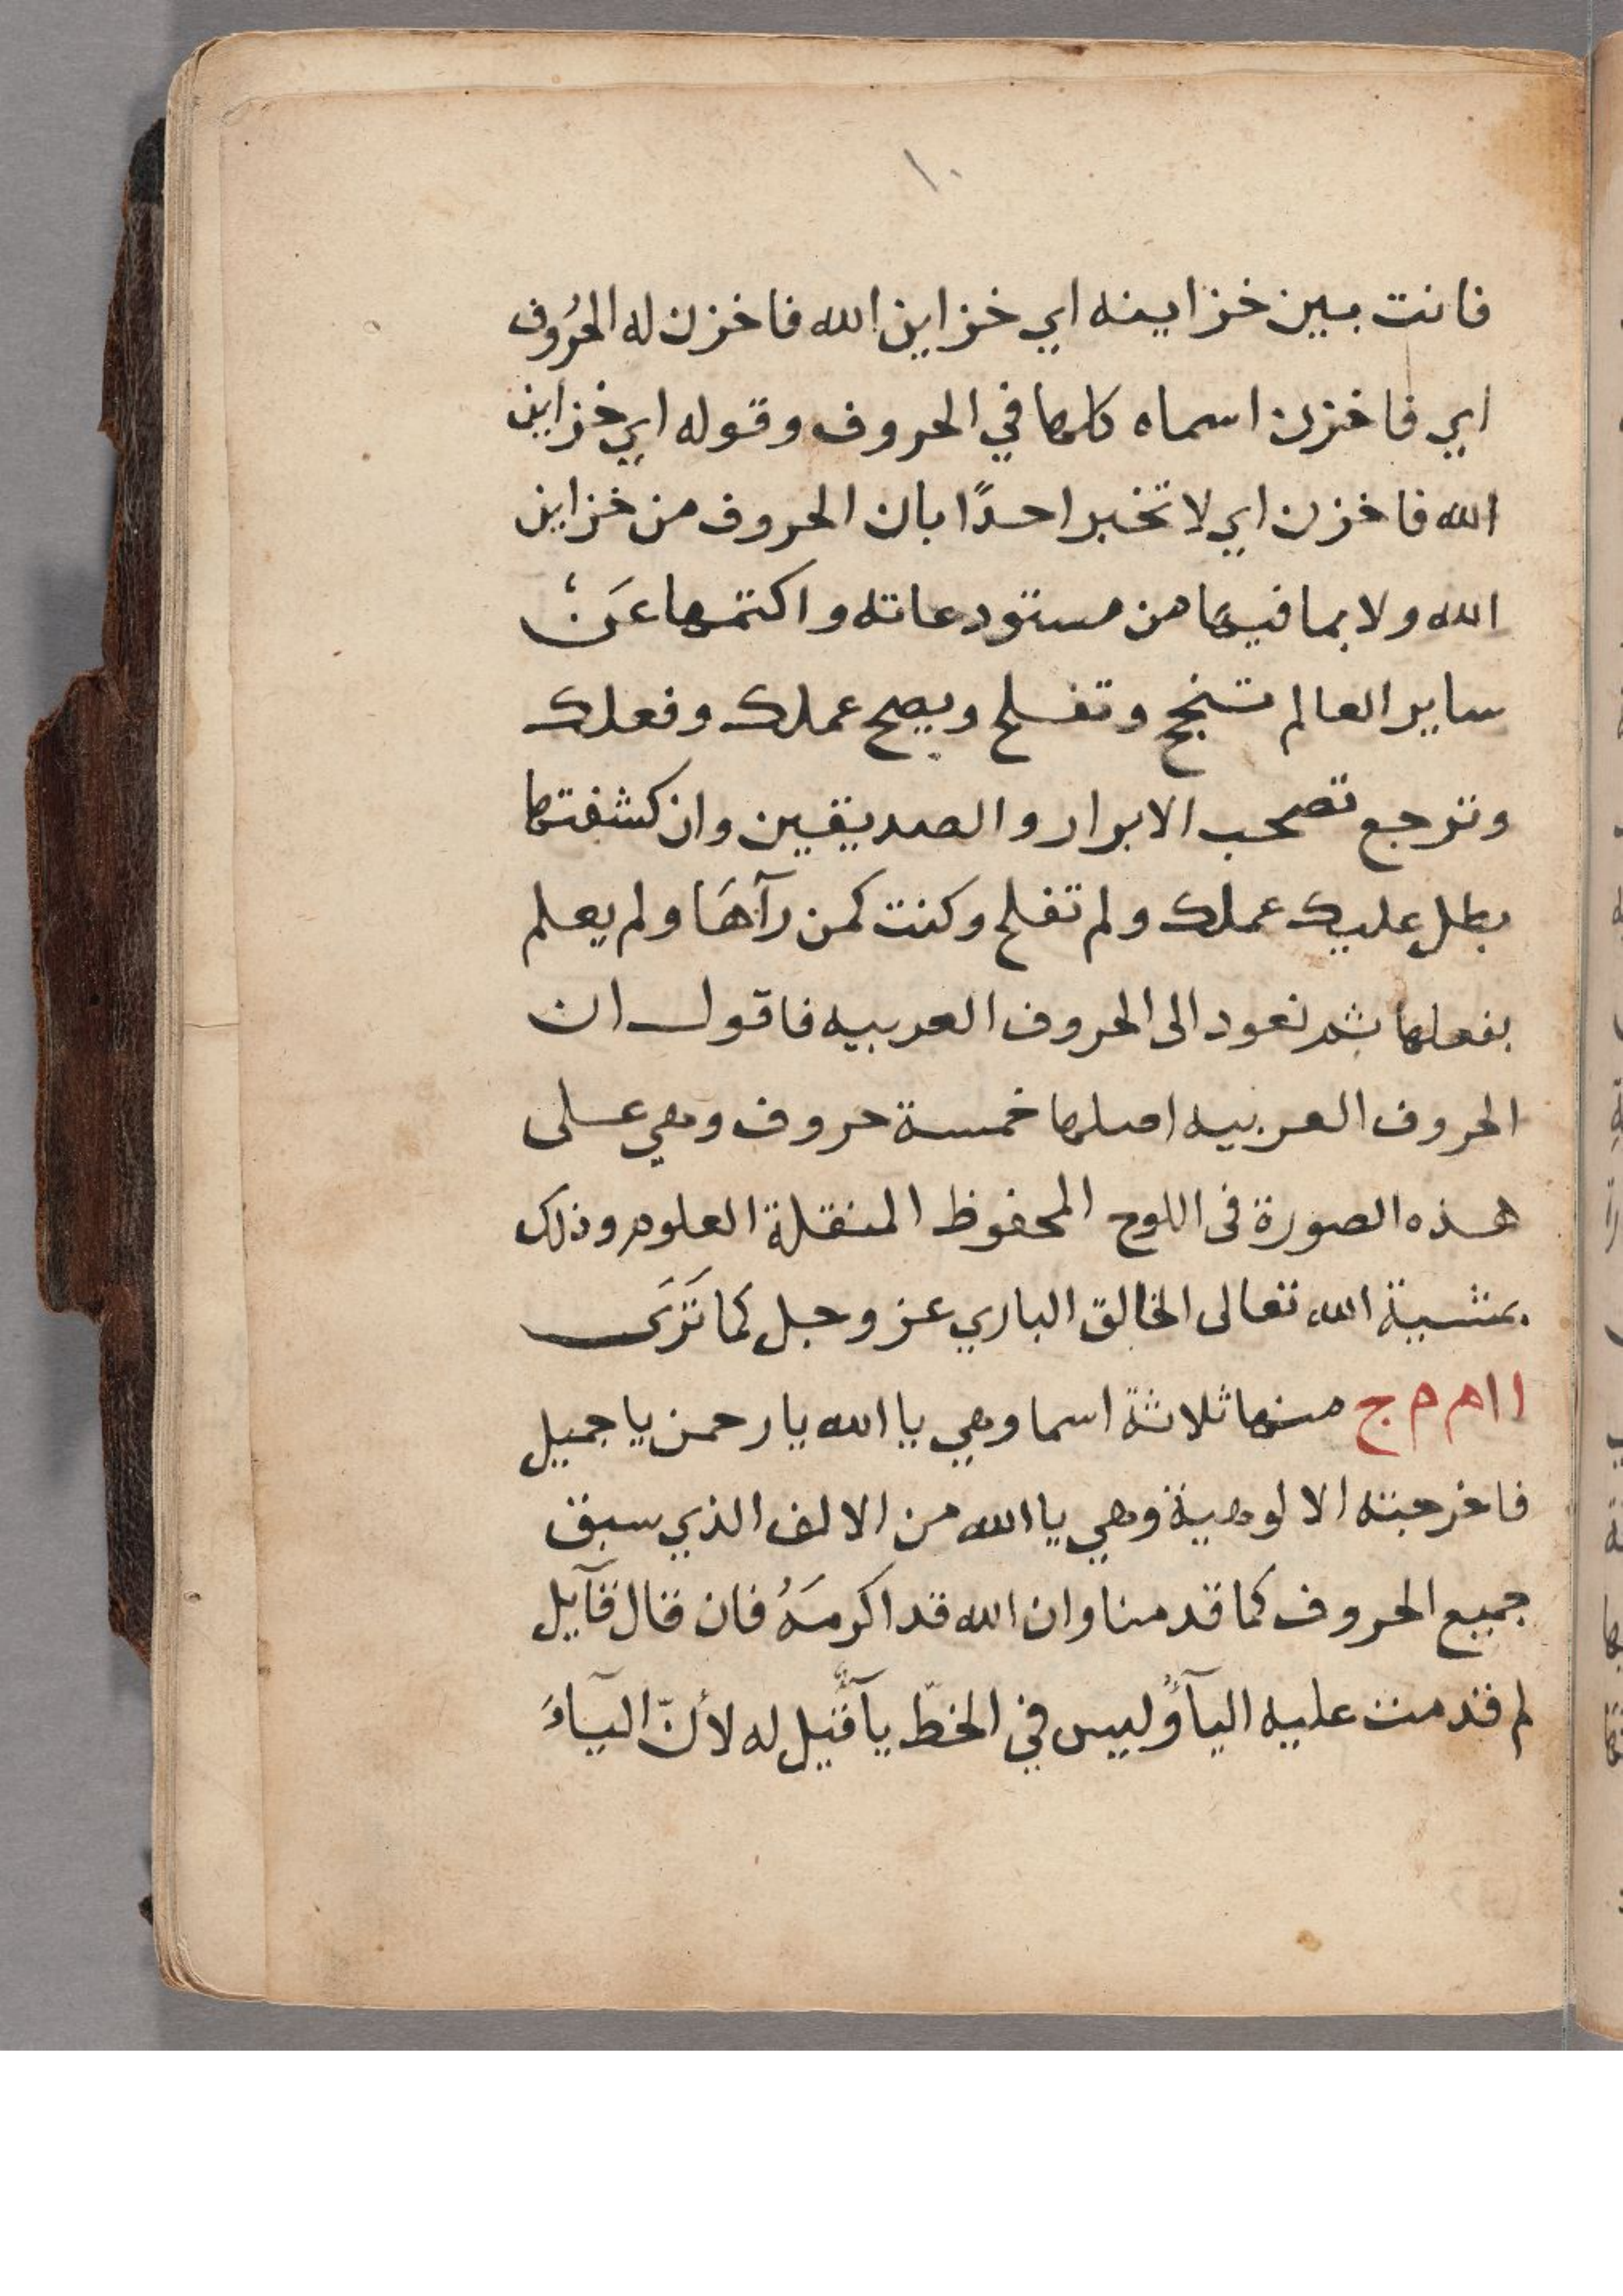 ١٠
فانت بين خزاينه اي خزاين الله فاخزن له الحرُوف
اي فاخزن اسماه كلها في الحروف وقوله اي خزاين
الله فاخزن اي لا تخبر احدًا بان الحروف من خزاين
الله ولا بما فيها من مستودعاته واكتمها عَنْ
ساير العالم تنجح وتفلح ويصح عملك وفعلك
وترجع تصحب الابرار والصديقين وان كشفتها
بطل عليك عملك ولم تفلح وكنت كمن رآهَا ولم يعلم
بفعلها ثم نعود الى الحروف العربيه فاقول ان
الحروف العربيه اصلها خمسة حروف وهي على
هذه الصورة فى اللوح المحفوظ المنقلة العلوم وذلك
بمشية الله تعالى الخالق الباري عز وجل كما تَرَى
ا ا م م ج منها ثلاثة اسما وهي يا الله يا رحمن يا جميل
فاخرجته الالوهية وهي يا الله من الالف الذي سبق
جميع الحروف كما قدمنا وان الله قد اكرمَهُ فان قال قآيل
لم قدمت عليه اليآ وليس في الخطّ يآ قيل له لأنّ اليآءَ